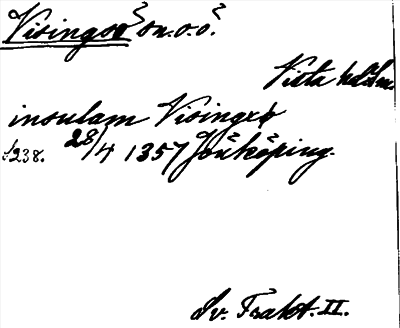 Visingsö sn. o. ö.
Vista hd Sm.
insulam Visingxø
s 238. 28/4 1357 Jönköping.
Sv. Trakt. II.